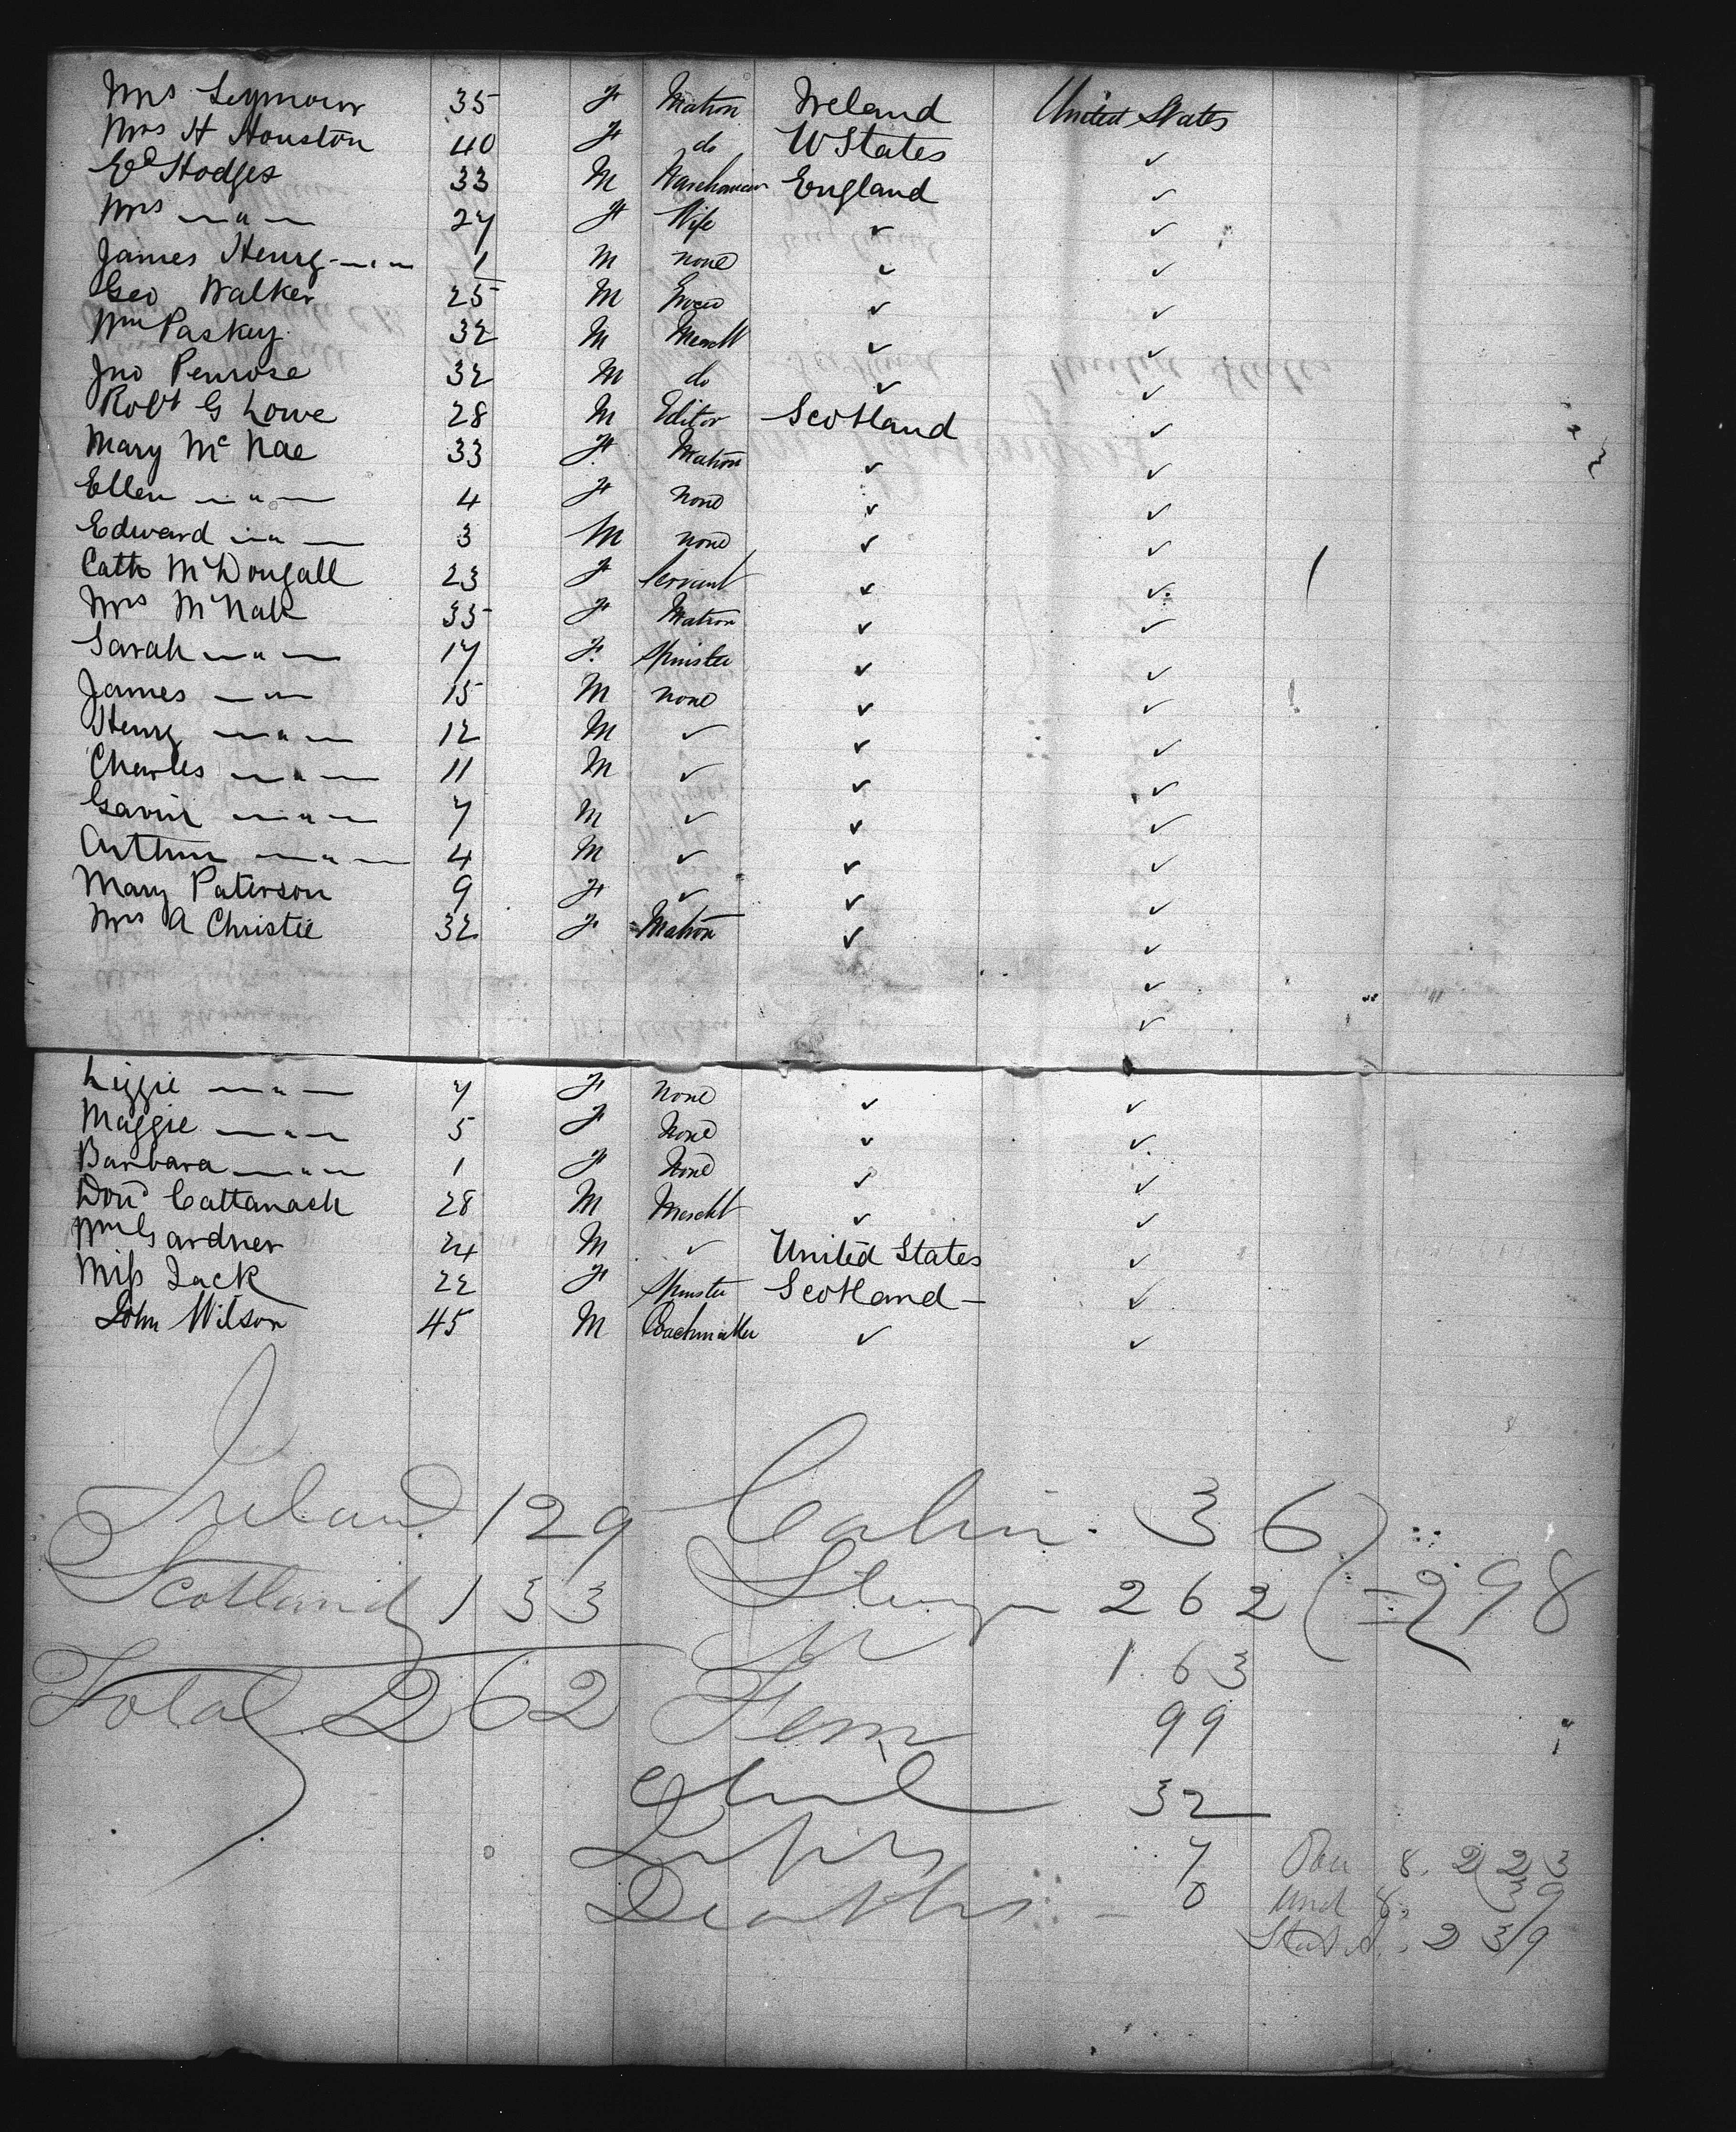 Mrs Seymour 35 F Matron Ireland United States
Mrs H Houston 40 F do U States ✓
Ed Hodges 33 M Warehouseman England ✓
Mrs —"— 27 F Wife ✓ ✓
James Henry —"— 1 M none ✓ ✓
Geo Walker 25 M Grocer ✓ ✓
Wm Paskey 32 M Mercht ✓ ✓
Jno Penrose 32 M do ✓ ✓
Robt G Lowe 28 M Editor Scotland ✓
Mary McNae 33 F Matron ✓ ✓
Ellen —"— 4 F none ✓ ✓
Edward —"— 3 M none ✓ ✓
Cath McDougall 23 F Servant ✓ ✓
Mrs McNab 35 F Matron ✓ ✓
Sarah —"— 17 F Spinster ✓ ✓
James —"— 15 M none ✓ ✓
Henry —"— 12 M ✓ ✓ ✓
Charles —"— 11 M ✓ ✓ ✓
Gavin —"— 7 M ✓ ✓ ✓
Arthur —"— 4 M ✓ ✓ ✓
Mary Paterson 9 F ✓ ✓ ✓
Mrs A Christie 32 F Matron ✓ ✓
Lizzie —"— 7 F none ✓ ✓
Maggie —"— 5 F none ✓ ✓
Barbara —"— 1 F none ✓ ✓
Dond Cattanach 28 M Mercht ✓ ✓
Wm Gardner 24 M ✓ United States ✓
Miss Jack 22 F Spinster Scotland – ✓
John Wilson 45 M Coachmaker ✓ ✓
Ireland 129 Cabin 36
Scotland 133 262 = 298
M 163
Total 262 Fem 99
Chil 32
7
Deaths – 0
8. 223
Und 8. 39
239